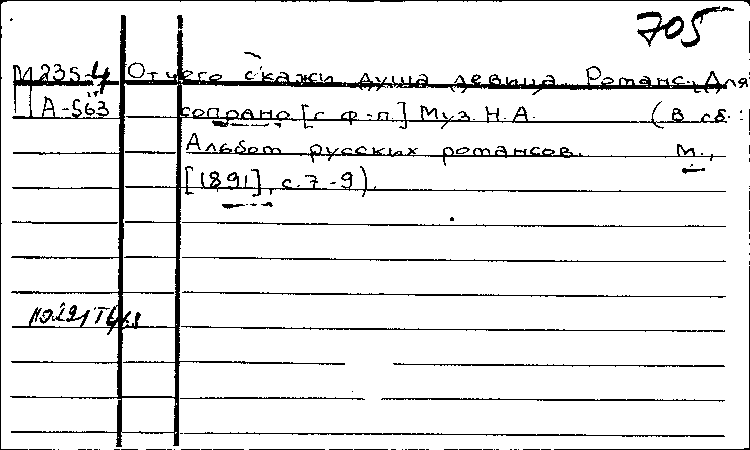 705
М 235-4 Отчего скажи душа девица. Романс. Для
А-563 сопрано [с ф-п] Муз. Н.А. (В сб.:
Альбом русских романсов. М.,
[1891], с. 7-9).